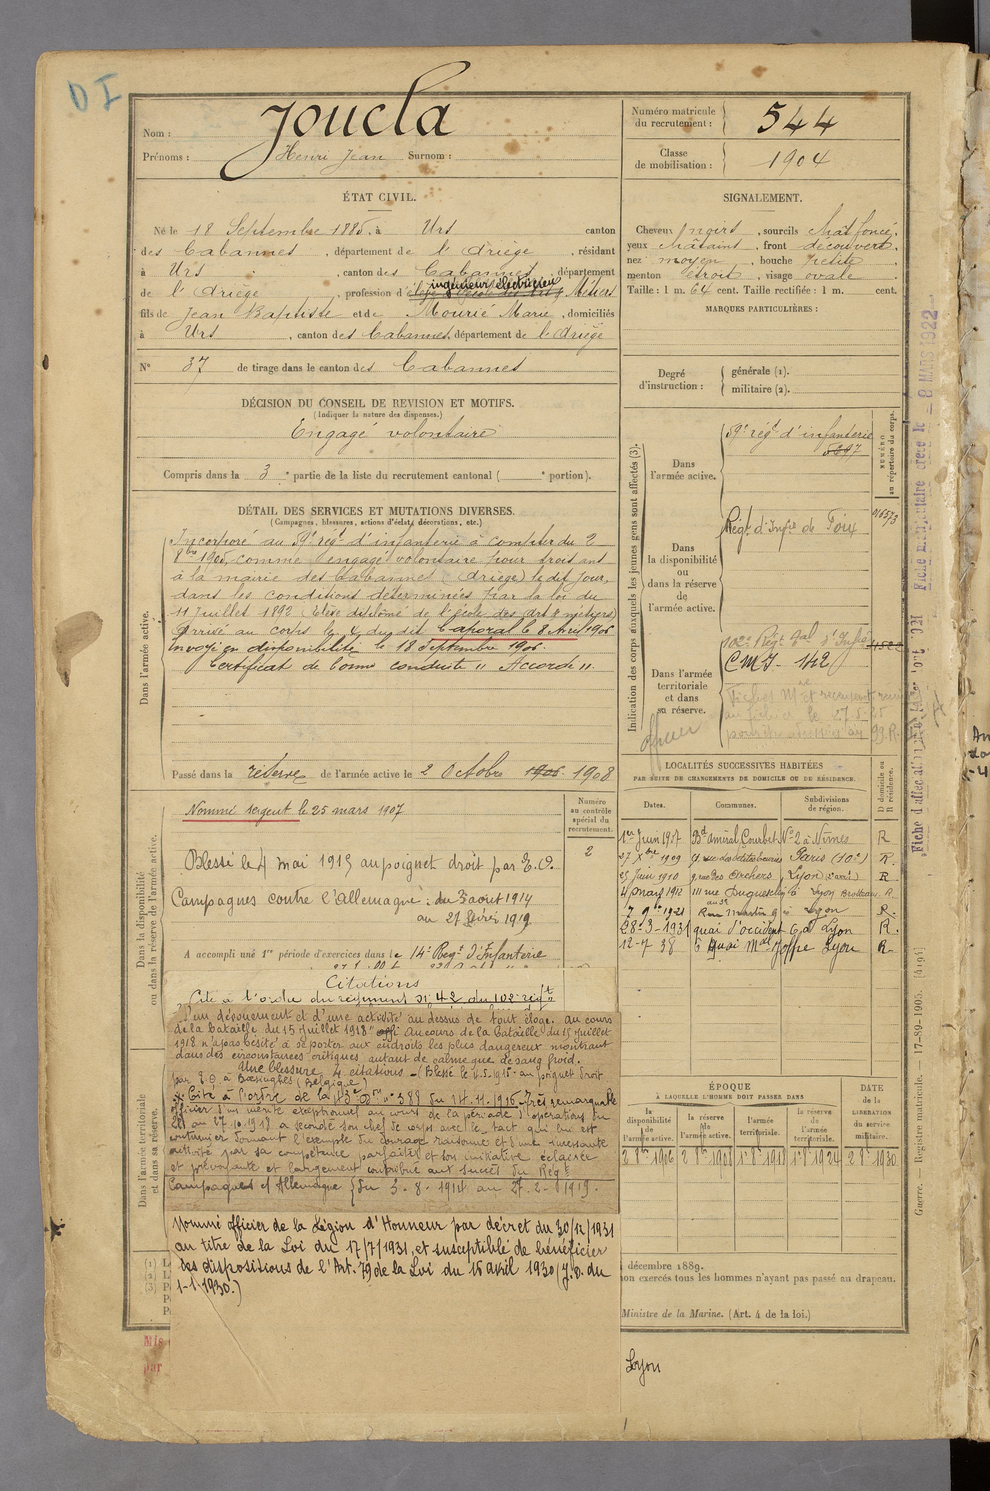 DI
Nom : Joucla
Prénoms : Henri Jean Surnom :
Numéro matricule
du recrutement : 544
Classe
de mobilisation : 1904
ÉTAT CIVIL.
Né le 18 Septembre 1885, à Urs canton
des Cabannes, département de l'Ariège, résidant
à Urs, canton des Cabannes, département
ingénieur électricien
de l'Ariège, profession d'élève Métiers
fils de Jean Baptiste et de Mourié Marie, domiciliés
à Urs, canton des Cabannes, département de l'Ariège
N° 37 de tirage dans le canton des Cabannes
DÉCISION DU CONSEIL DE REVISION ET MOTIFS.
(Indiquer la nature des dispenses.)
Engagé volontaire
Compris dans la 3e partie de la liste du recrutement cantonal ( e portion).
DÉTAIL DES SERVICES ET MUTATIONS DIVERSES.
(Campagnes, blessures, actions d'éclat, décorations, etc.)
Dans l'armée active.
Incorporé au 59e rég.t d'infanterie à compter du 2
8bre 1905, comme engagé volontaire pour trois ans
à la mairie des Cabannes (Ariège) le dit jour,
dans les conditions déterminées par la loi du
11 Juillet 1892 (Elève diplômé de l'école des arts & métiers)
Arrivé au corps le du dit Caporal le 8 Avril 1906
Envoyé en disponibilité le 18 Septembre 1906.
Certificat de bonne conduite " Accordé ".
Passé dans la réserve de l'armée active le 2 Octobre 1906 1908
Dans la disponibilité
ou dans la réserve de l'armée active.
Nommé sergent le 25 mars 1907
Numéro
au contrôle
spécial du
recrutement.
2
Blessé le 4 mai 1915 au poignet droit par E.O.
Campagnes contre l'Allemagne : du 3 août 1914
au 27 février 1919
A accompli une 1re période d'exercices dans le 14e Reg.t d'Infanterie
Citations
Cité à l'ordre du régiment N° 42 du 102e rég.t
d'un dévouement et d'une activité au dessus de tout éloge. au cours
de la bataille du 15 juillet 1918" au cours de la bataille du 15 juillet
1918 n'a pas hésité à se porter aux endroits les plus dangereux montrant
dans des circonstances critiques autant de calme que de sang froid.
Une blessure 4 citations - (Blessé le 4.5.1915. au poignet droit
par E.O. à Bœsinghe (Belgique)
Cité à l'ordre de la n° 388 du 14.11.1918 Très remarquable
officier d'un mérite exceptionnel au cours de la période d'opérations du
au 27.10.1918 a secondé son chef de corps avec le tact qui lui est
coutumier donnant l'exemple du courage raisonné et d'une incessante
activité par sa compétence parfaite et son initiative éclairée
et prévoyante et largement contribué aux succès du Rég.t
Campagnes c/ Allemagne (du 3.8.1914 au 27.2.1919.
Dans l'armée territoriale
et dans sa réserve.
Nommé officier de la Légion d'Honneur par décret du 30/12/1931
au titre de la Loi du 17/7/1931, et susceptible de bénéficier
des dispositions de l'Art. 79 de la Loi du 16 avril 1930 (J.O. du
1-1-1930.)
SIGNALEMENT.
Cheveux noirs, sourcils chât. foncé,
yeux châtains, front découvert,
nez moyen, bouche petite
menton étroit, visage ovale
Taille : 1 m. 64 cent. Taille rectifiée : 1 m. cent.
MARQUES PARTICULIÈRES :
Degré
d'instruction : générale (1).
militaire (2).
Indication des corps auxquels les jeunes gens sont affectés (3).
NUMÉRO
au répertoire du corps.
Dans
l'armée active.
59e rég.t d'infanterie
5297
Dans
la disponibilité
ou
dans la réserve
de
l'armée active.
Rég.t d'Inf.ie de Foix
Dans l'armée
territoriale
et dans
sa réserve.
102e Rég.t d'Inf.ie
CMI - 142
officier
LOCALITÉS SUCCESSIVES HABITÉES
PAR SUITE DE CHANGEMENTS DE DOMICILE OU DE RÉSIDENCE.
D domicile ou
R résidence.
Dates. Communes. Subdivisions
de région.
1er Juin 1907 Bd amiral Courbet N° 2 à Nîmes R
27 Xbre 1909 Paris (10e) R.
25 Juin 1910 g. rue des Archers Lyon R
4 mars 1912 111 rue Duguesclin à Lyon Brotteaux R
7 9bre 1921 Lyon R
28-3-1931 quai d'occident 6 à Lyon R.
12-7 38 5 Quai Mal Joffre Lyon R.
ÉPOQUE
À LAQUELLE L'HOMME DOIT PASSER DANS
DATE
de la
LIBÉRATION
du service
militaire.
la
disponibilité
de
l'armée active.
la réserve
de
l'armée active.
l'armée
territoriale.
la réserve
de
l'armée
territoriale.
2 8bre 1906 2 8bre 1908 1er 8bre 1918 1er 8bre 1924 2 8bre 1930
décembre 1889.
non exercés tous les hommes n'ayant pas passé au drapeau.
Ministre de la Marine. (Art. 4 de la loi.)
Lyon
Guerre. — Registre matricule. — 17-89-1905. [4194]
8 MARS 1922